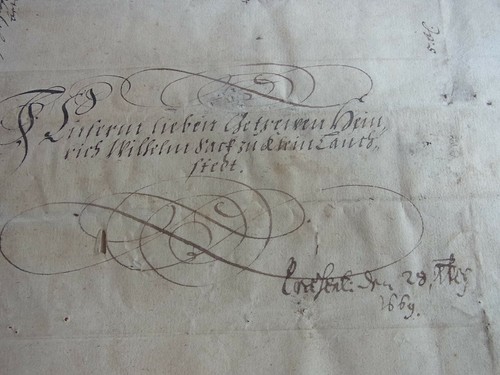 Unserm lieben Getrewen Hein,
rich Wilhelm Sack zu Klein Lauch,
stedt.
den 28.
1669.